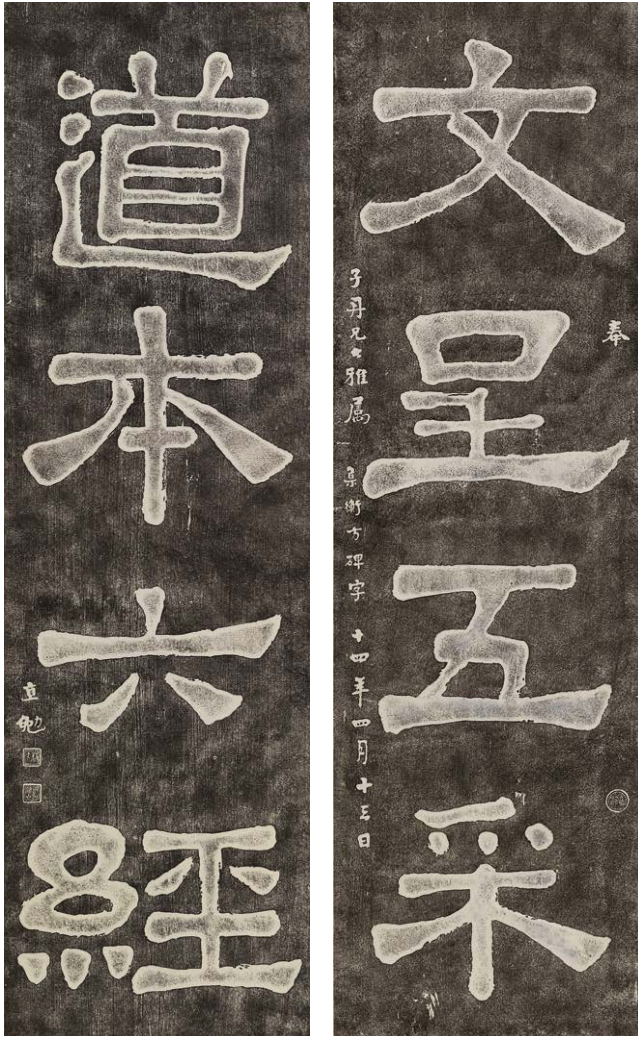 文呈五采
奉
子丹兄大雅属 集衡方碑字 十四年四月十三日
道本六經
直勉